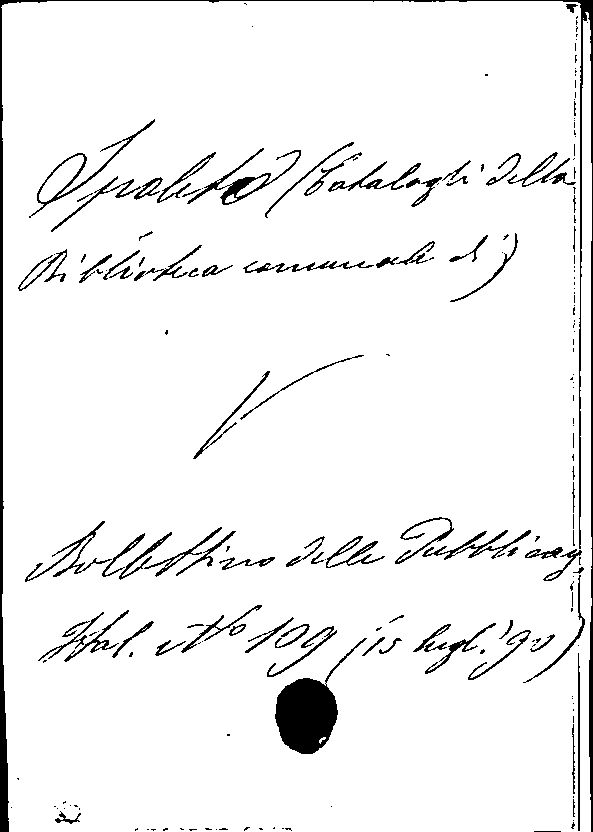 Spoleto (Cataloghi della
Biblioteca comunale di)
Bollettino delle Pubblicaz.
Ital. N° 109 (15 lugl. '90)